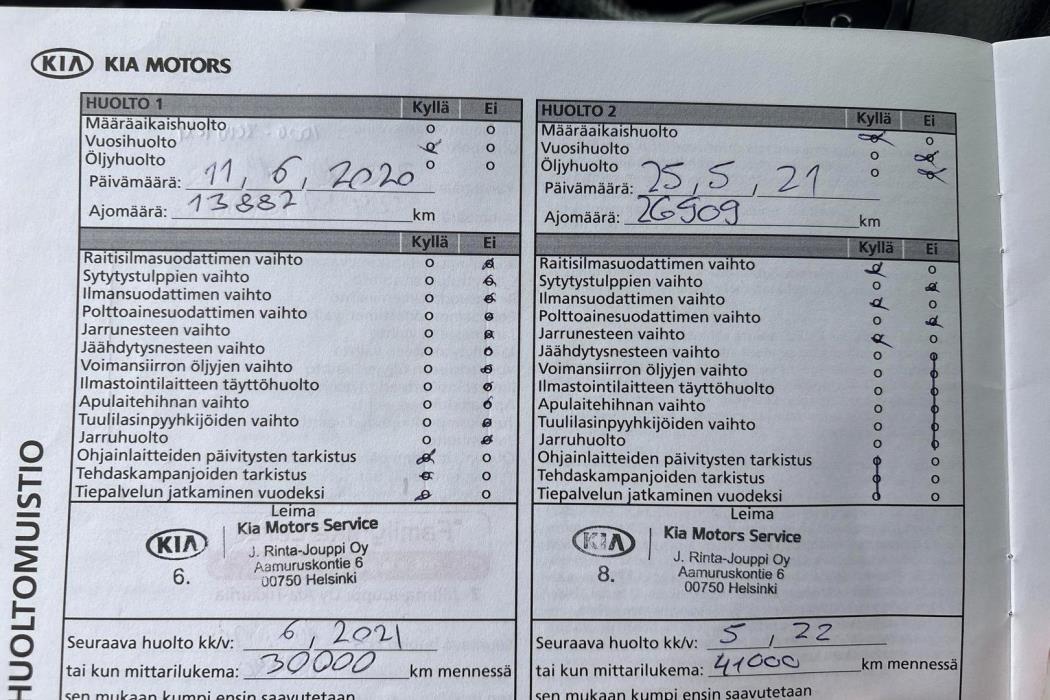 KIA KIA MOTORS
HUOLTO 1 Kyllä Ei
Määräaikaishuolto
Vuosihuolto
Öljyhuolto
Päivämäärä: 11, 6, 2020
Ajomäärä: 13882 km
Kyllä Ei
Raitisilmasuodattimen vaihto
Sytytystulppien vaihto
Ilmansuodattimen vaihto
Polttoainesuodattimen vaihto
Jarrunesteen vaihto
Jäähdytysnesteen vaihto
Voimansiirron öljyjen vaihto
Ilmastointilaitteen täyttöhuolto
Apulaitehihnan vaihto
Tuulilasinpyyhkijöiden vaihto
Jarruhuolto
Ohjainlaitteiden päivitysten tarkistus
Tehdaskampanjoiden tarkistus
Tiepalvelun jatkaminen vuodeksi
Leima
KIA Kia Motors Service
J. Rinta-Jouppi Oy
6. Aamuruskontie 6
00750 Helsinki
Seuraava huolto kk/v: 6, 2021
tai kun mittarilukema: 30000 km mennessä
sen mukaan kumpi ensin saavutetaan
HUOLTO 2 Kyllä Ei
Määräaikaishuolto
Vuosihuolto
Öljyhuolto
Päivämäärä: 25, 5, 21
Ajomäärä: 26909 km
Kyllä Ei
Raitisilmasuodattimen vaihto
Sytytystulppien vaihto
Ilmansuodattimen vaihto
Polttoainesuodattimen vaihto
Jarrunesteen vaihto
Jäähdytysnesteen vaihto
Voimansiirron öljyjen vaihto
Ilmastointilaitteen täyttöhuolto
Apulaitehihnan vaihto
Tuulilasinpyyhkijöiden vaihto
Jarruhuolto
Ohjainlaitteiden päivitysten tarkistus
Tehdaskampanjoiden tarkistus
Tiepalvelun jatkaminen vuodeksi
Leima
KIA Kia Motors Service
J. Rinta-Jouppi Oy
8. Aamuruskontie 6
00750 Helsinki
Seuraava huolto kk/v: 5, 22
tai kun mittarilukema: 41000 km mennessä
sen mukaan kumpi ensin saavutetaan
HUOLTOMUISTIO